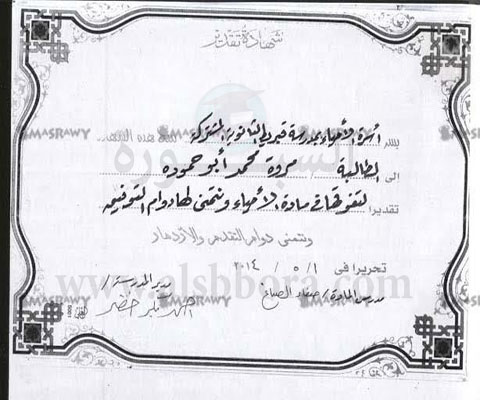 شهادة تقدير
يسر أسرة الأحياء بمدرسة الثانوية المشتركة
الى الطالبة مروة محمد أبو حموده
تقديرا لتفوقها في مادة الأحياء ونتمنى لها دوام التوفيق
ونتمنى دوام التقدم والازدهار
تحريرا فى ١ / ٥ / ٢٠١٤
مدرس المادة / صفاء الصباغ
مدير المدرسة /
www.alsbbora.com
MASRAWY